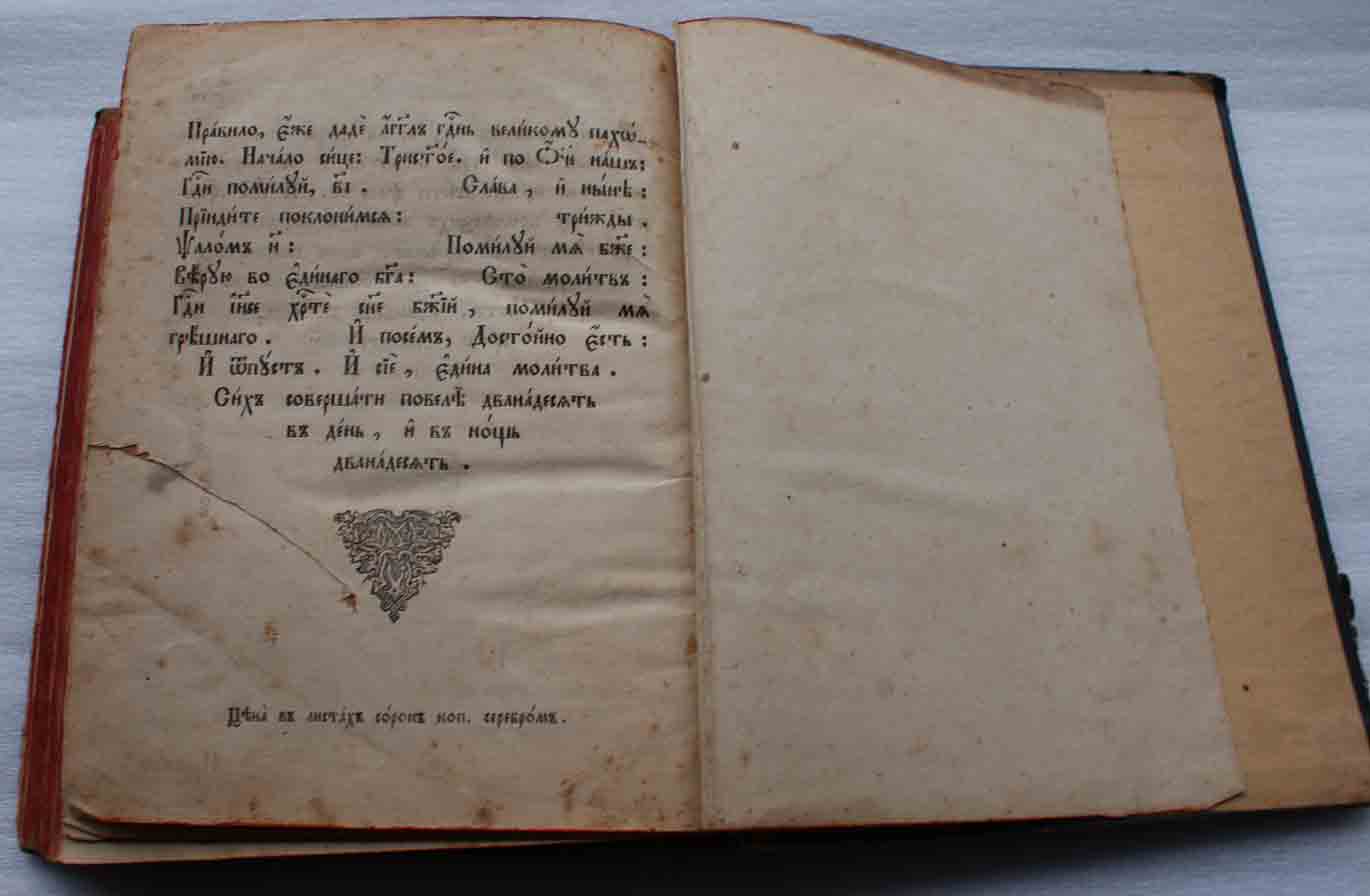 Пра́вило, є҆́же дадѐ а҆́гг҃лъ гд҇нь вели́кому пахѡ́-
мїю. Нача́ло си́це: Трист҃о́е. и҆ по Ѻ҆́ч҃е на́шъ:
Гд҇и поми́лꙋй, в҃і. Сла́ва, и҆ ны́нѣ:
Прїиди́те поклони́мсѧ: три́жды.
Ѱало́мъ н҃: Поми́лꙋй мѧ̀ бж҃е:
Вѣ́рую во є҆ди́наго бг҃а: Сто̀ моли́твъ:
Гд҇и і҆и҃се хрⷭ҇тѐ сн҃е бж҃їй, поми́лꙋй мѧ̀
грѣ́шнаго. И҆ посе́мъ, Досто́йно є҆́сть:
И҆ ѿпꙋ́стъ. И҆ сїѐ, є҆ди́на моли́тва.
Си́хъ соверша́ти повелѣ̀ двана́десѧть
въ де́нь, и҆ въ но́щь
двана́десѧть.
Цѣна̀ въ листа́хъ со́рокъ коп. серебро́мъ.